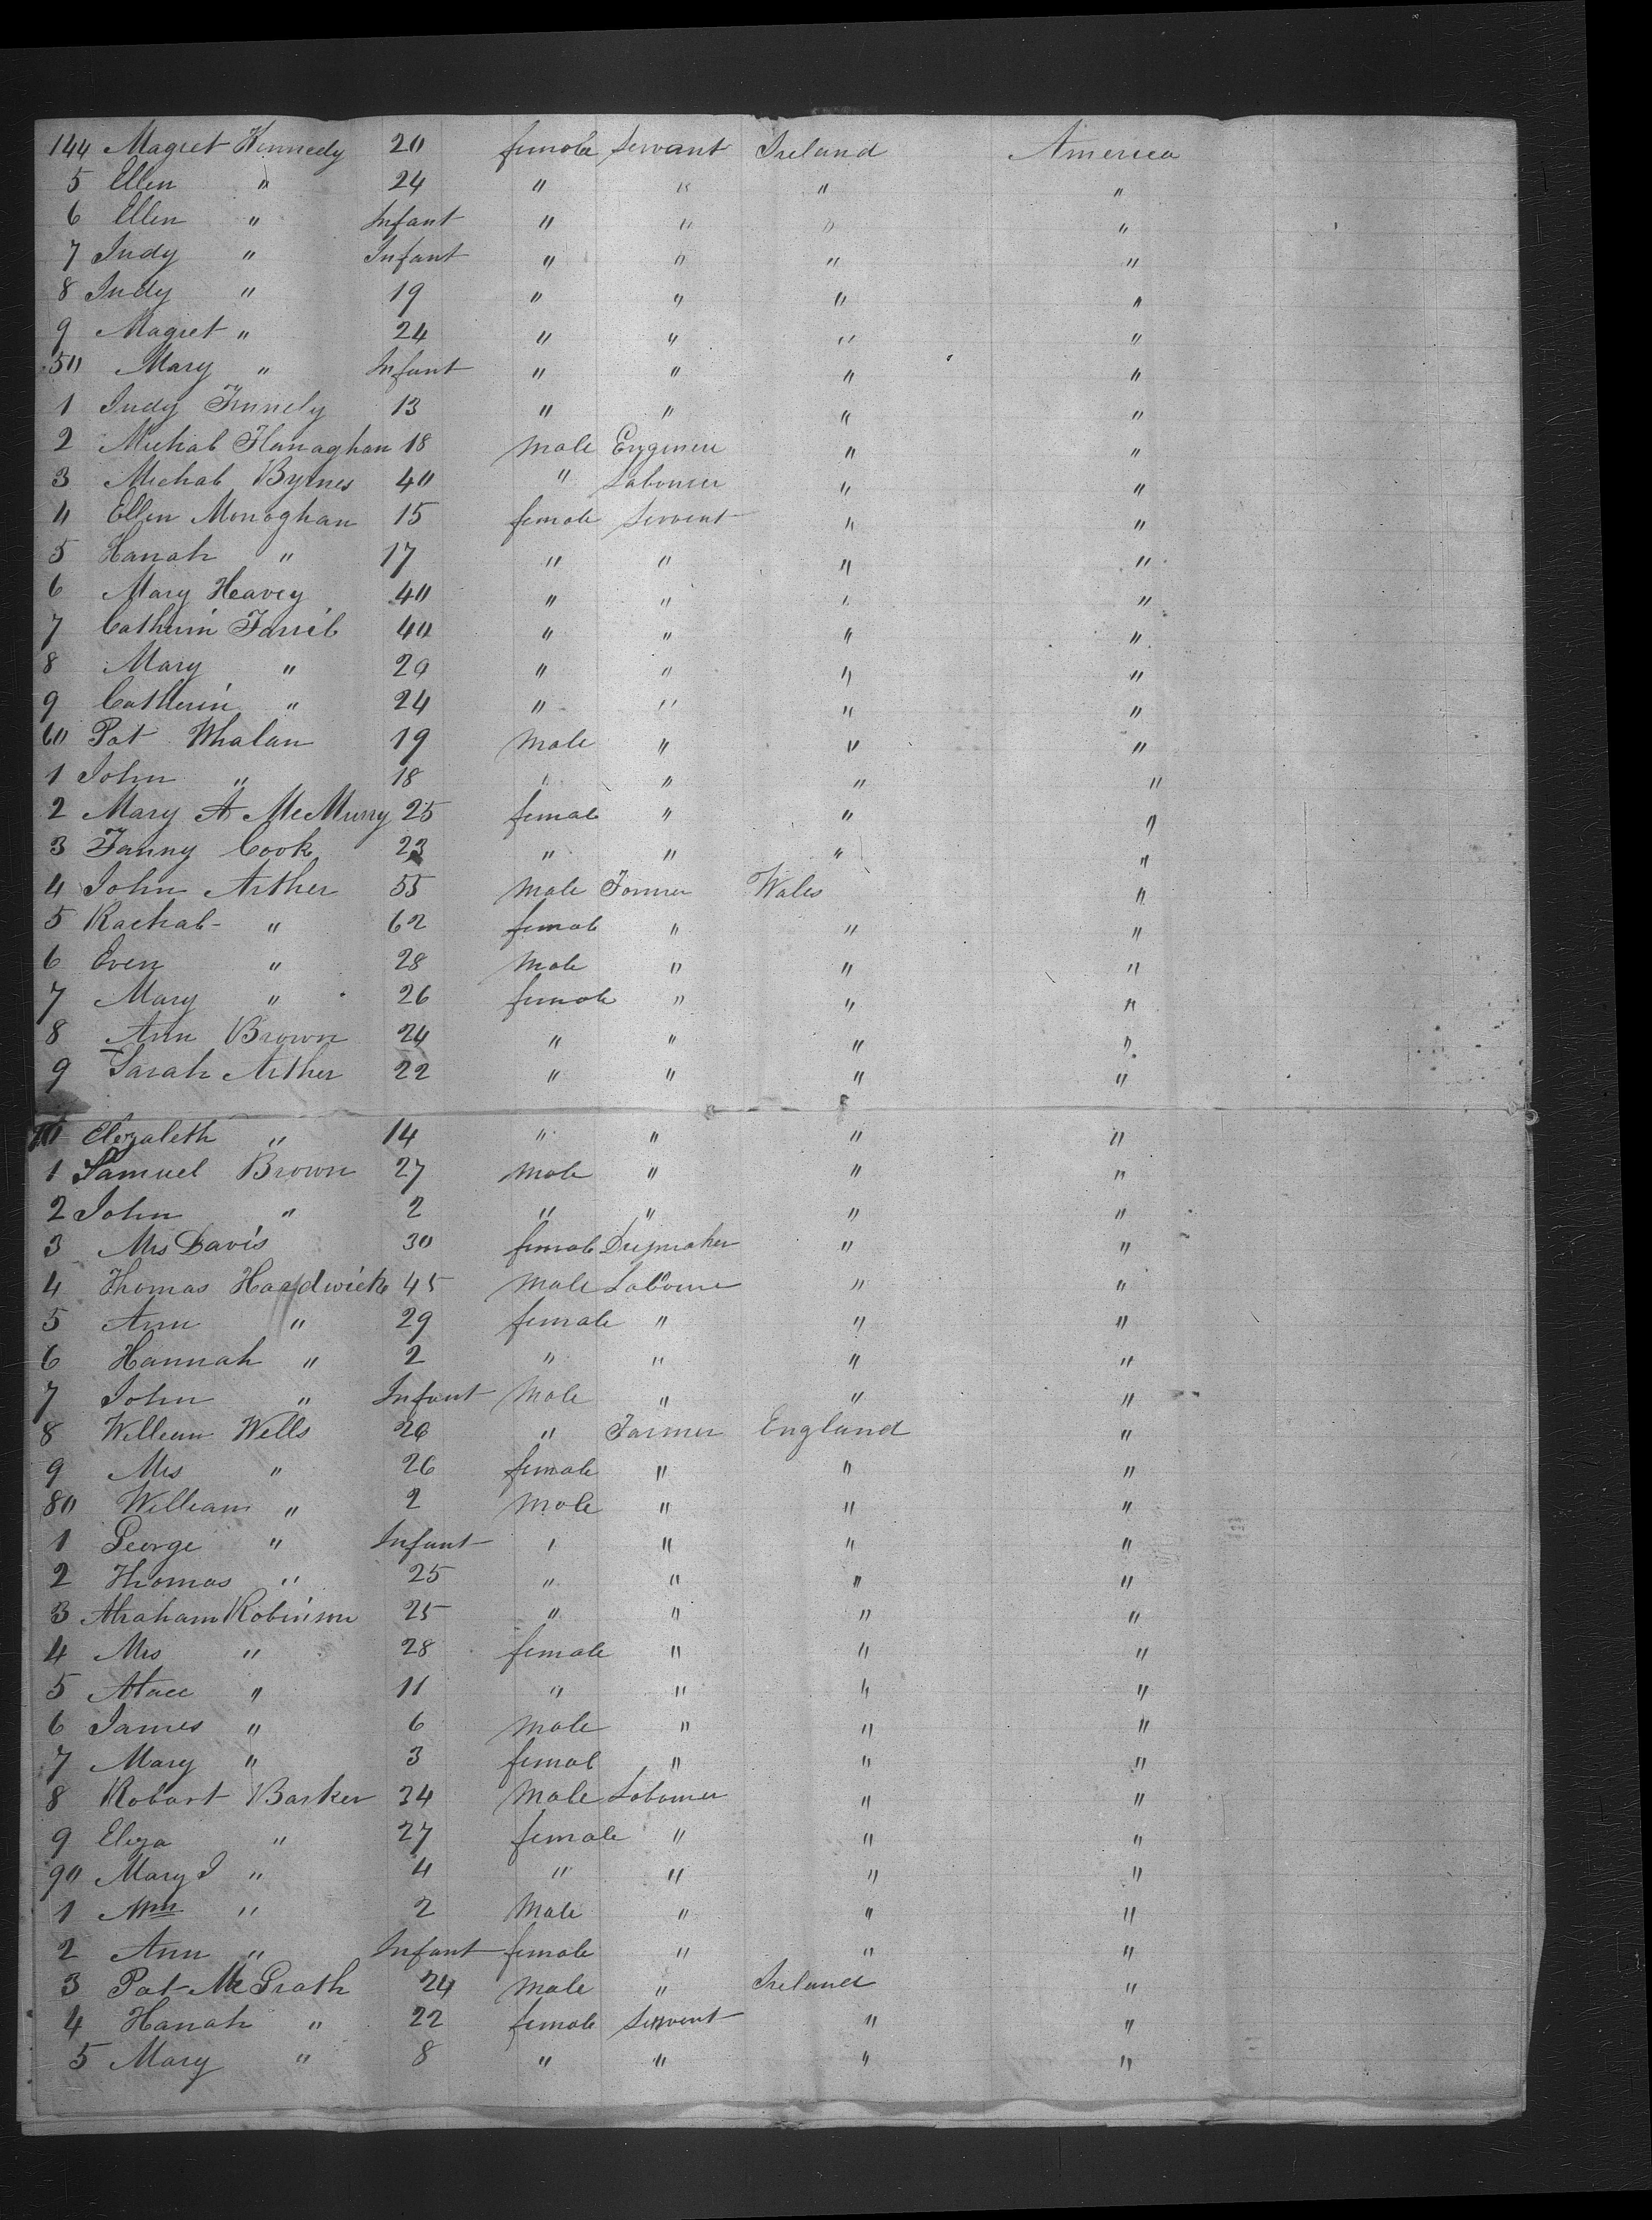 144 Magret Kennedy 20 female Servant Ireland America
5 Ellen " 24 " " " "
6 Ellen " Infant " " " "
7 Judy " Infant " " " "
8 Judy " 19 " " " "
9 Magret " 24 " " " "
50 Mary " Infant " " " "
1 Judy 13 " " " "
2 Michal Flanaghan 18 Male Engineer " "
3 Michal Byrnes 40 " Labourer " "
4 Ellen Monoghan 15 female Servent " "
5 Hanah " 17 " " " "
6 Mary Heavey 40 " " " "
7 Catherin 40 " " " "
8 Mary " 20 " " " "
9 Catherin " 24 " " " "
60 Pat Whalan 19 Male " " "
1 John " 18 " " " "
2 Mary A McMurry 25 female " " "
3 Fanny Cook 23 " " " "
4 John Arther 55 Male Farmer Wales "
5 Rachal " 62 female " " "
6 Even " 28 Male " " "
7 Mary " 26 female " " "
8 Ann Brown 24 " " " "
9 Sarah Arther 22 " " " "
70 Elizabeth " 14 " " " "
1 Samuel Brown 27 Male " " "
2 John " 2 " " " "
3 Mrs Davis 30 female " "
4 Thomas Hardwick 45 Male Laboure " "
5 Ann " 29 female " " "
6 Hannah " 2 " " " "
7 John " Infant Male " " "
8 William Wells 26 " Farmer England "
9 Mrs " 26 female " " "
80 William " 2 Male " " "
1 George " Infant " " " "
2 Thomas " 25 " " " "
3 Abraham Robinson 25 " " " "
4 Mrs " 28 female " " "
5 " 11 " " " "
6 James " 6 Male " " "
7 Mary " 3 female " " "
8 Robart Barker 34 Male Labourer " "
9 Eliza " 27 female " " "
90 Mary J " 4 " " " "
1 Wm " 2 Male " " "
2 Ann " Infant female " " "
3 Pat McGrath 24 Male " Ireland "
4 Hanah " 22 female Servent " "
5 Mary " 8 " " " "